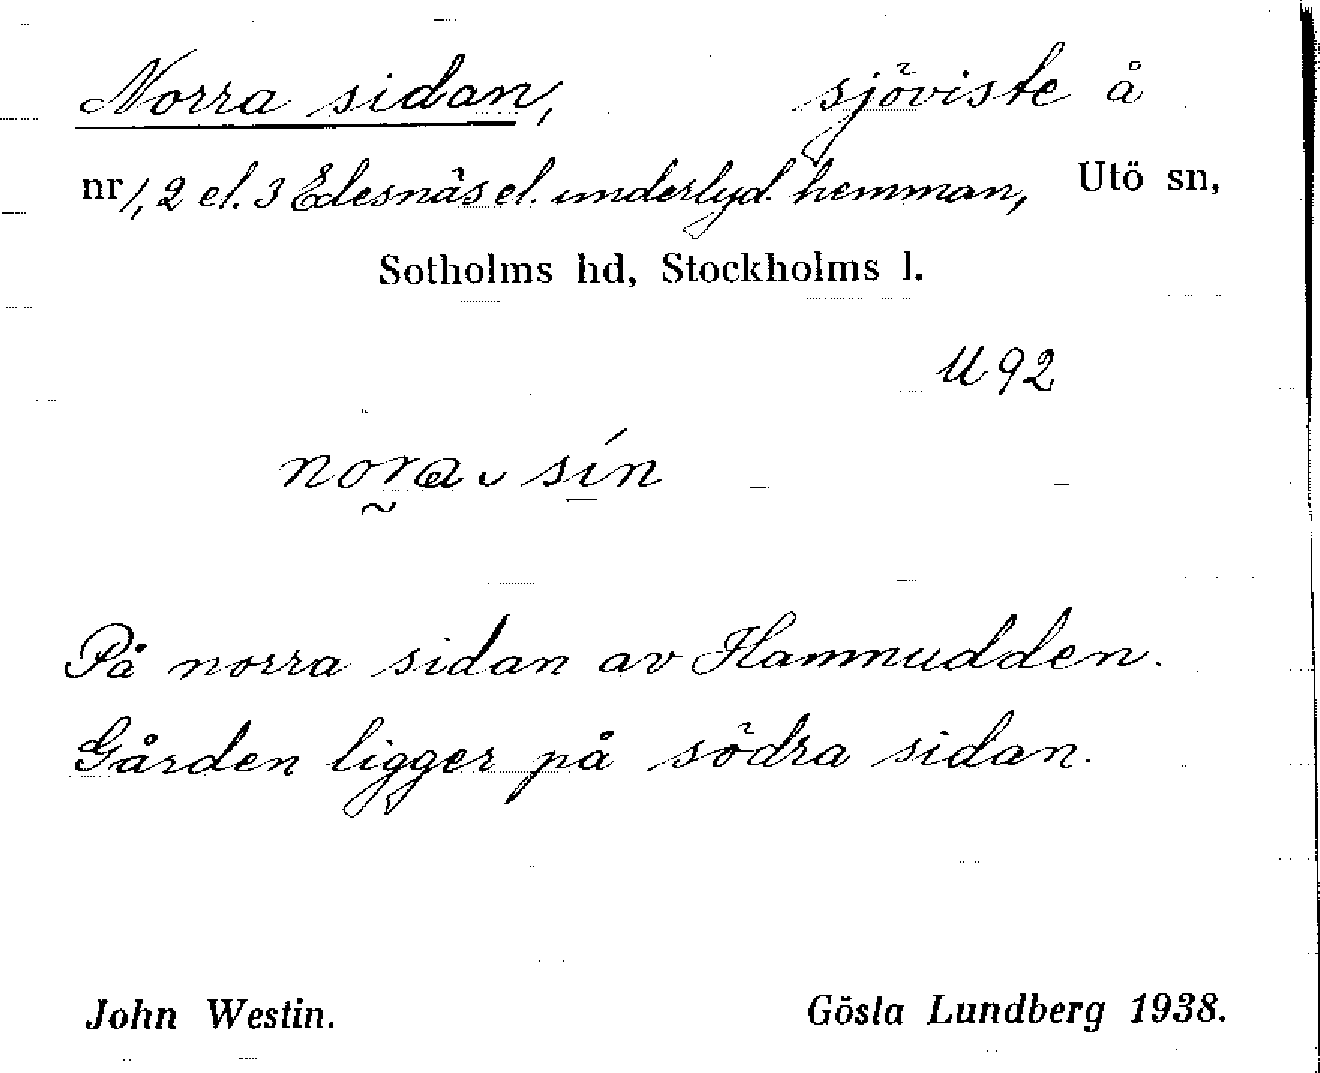 Norra sidan, sjöviste å
nr 1, 2 el. 3 Edesnäs el. underlyd. hemman, Utö sn,
Sotholms hd, Stockholms l.
U 92
nora sín
På norra sidan av Hamnudden.
Gården ligger på södra sidan.
John Westin. Gösta Lundberg 1938.